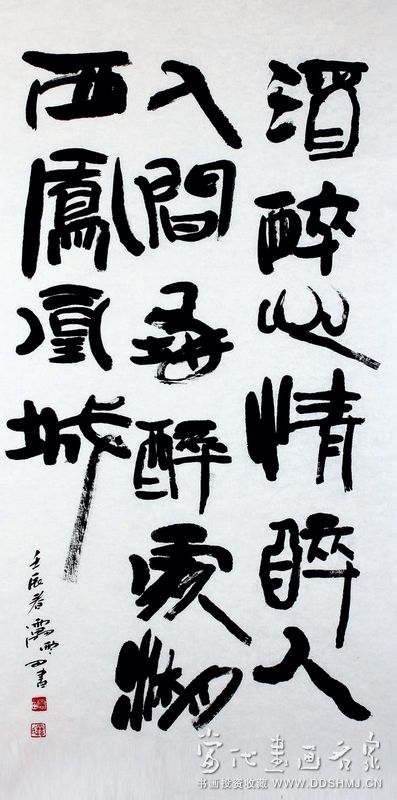 酒醉心情醉人
人間醉處湘
西鳳凰城
壬辰春書
当代書画名家
书画投资收藏 WWW.DDSHMJ.CN